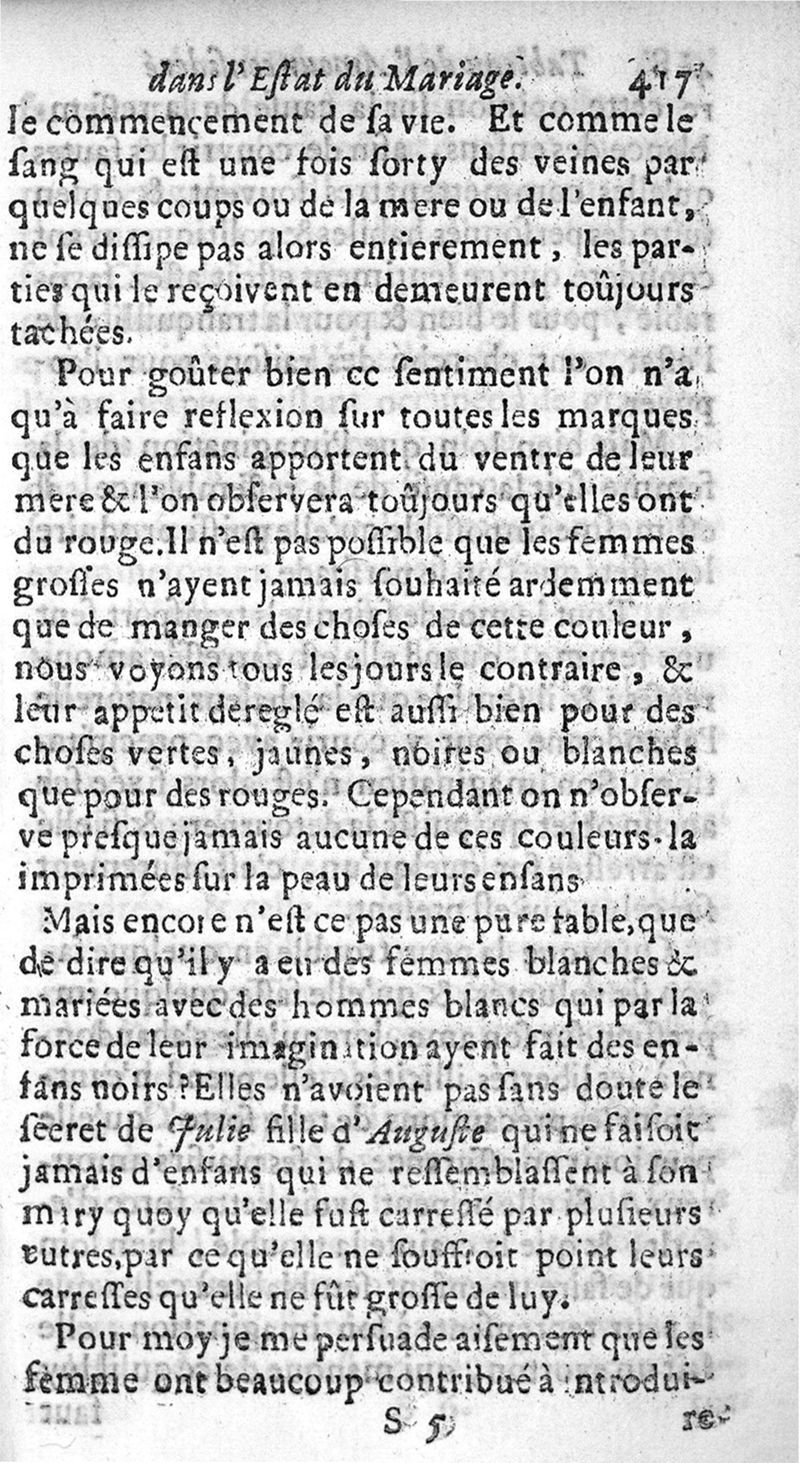 dans l'Eſtat du Mariage. 417
le commencement de ſa vie. Et comme le
ſang qui eſt une fois ſorty des veines par
quelques coups ou de la mere ou de l'enfant,
ne ſe diſſipe pas alors entierement, les par-
ties qui le reçoivent en demeurent toûjours
tachées.
Pour goûter bien ce ſentiment l'on n'a
qu'à faire reflexion ſur toutes les marques
que les enfans apportent du ventre de leur
mere & l'on obſervera toûjours qu'elles ont
du rouge. Il n'eſt pas poſſible que les femmes
groſſes n'ayent jamais ſouhaité ardemment
que de manger des choſes de cette couleur,
nous voyons tous les jours le contraire, &
leur appetit dereglé eſt auſſi bien pour des
choſes vertes, jaunes, noires ou blanches
que pour des rouges. Cependant on n'obſer-
ve preſque jamais aucune de ces couleurs-la
imprimées ſur la peau de leurs enfans
Mais encore n'eſt ce pas une pure fable, que
de dire qu'il y a eu des femmes blanches &
mariées avec des hommes blancs qui par la
force de leur imagination ayent fait des en-
fans noirs? Elles n'avoient pas ſans doute le
ſecret de Julie fille d'Auguſte qui ne faiſoit
jamais d'enfans qui ne reſſemblaſſent à ſon
mary quoy qu'elle fuſt carreſſé par pluſieurs
autres, par ce qu'elle ne ſouffroit point leurs
carreſſes qu'elle ne fût groſſe de luy.
Pour moy je me perſuade aiſement que les
femme ont beaucoup contribué à introdui-
S 5 re